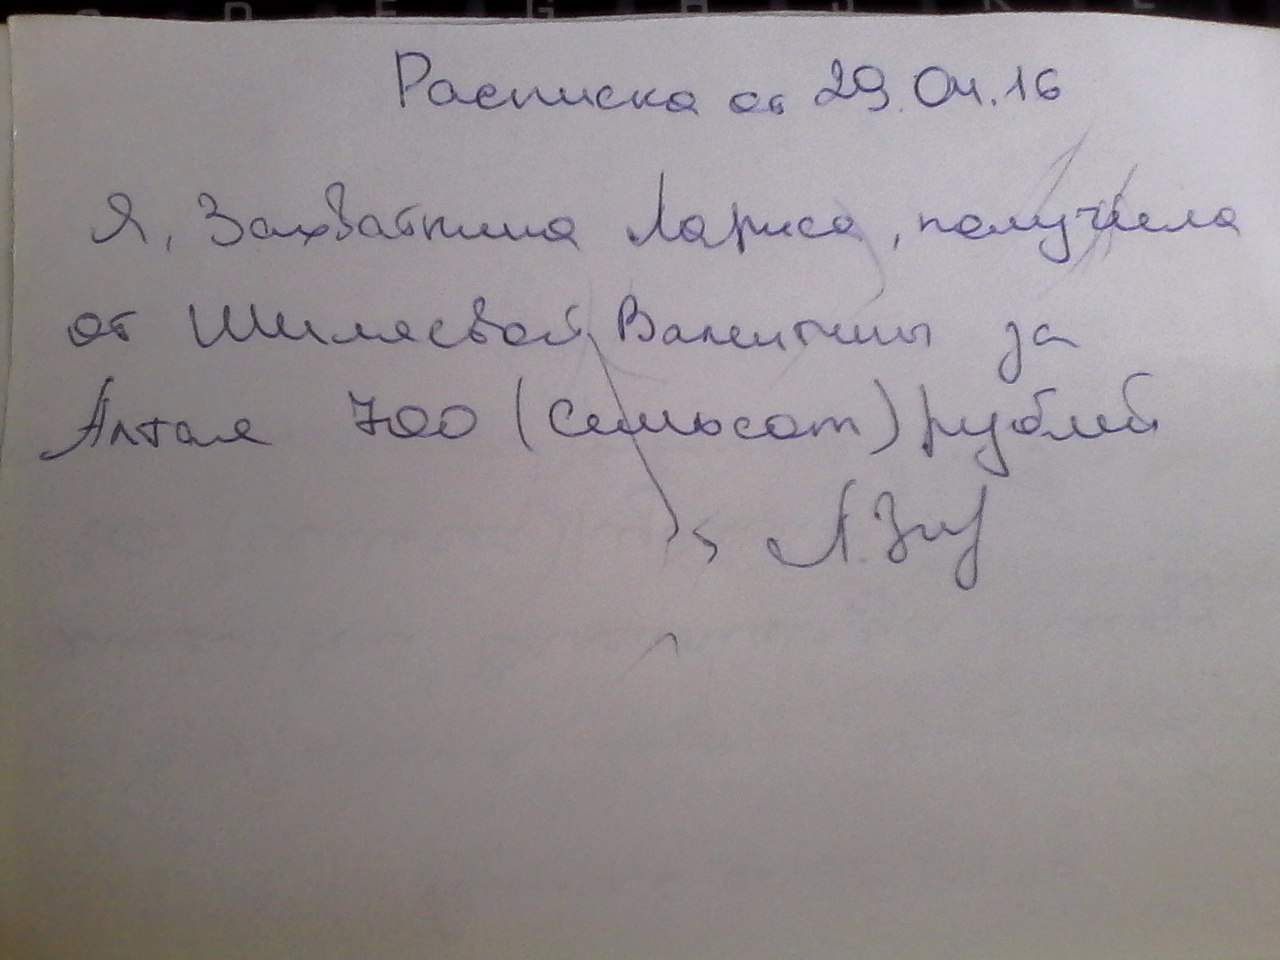 Расписка от 29.04.16
Я, Захваткина Лариса, получила
от Шиляевой Валентины за
Алтая 700 (семьсот) рублей